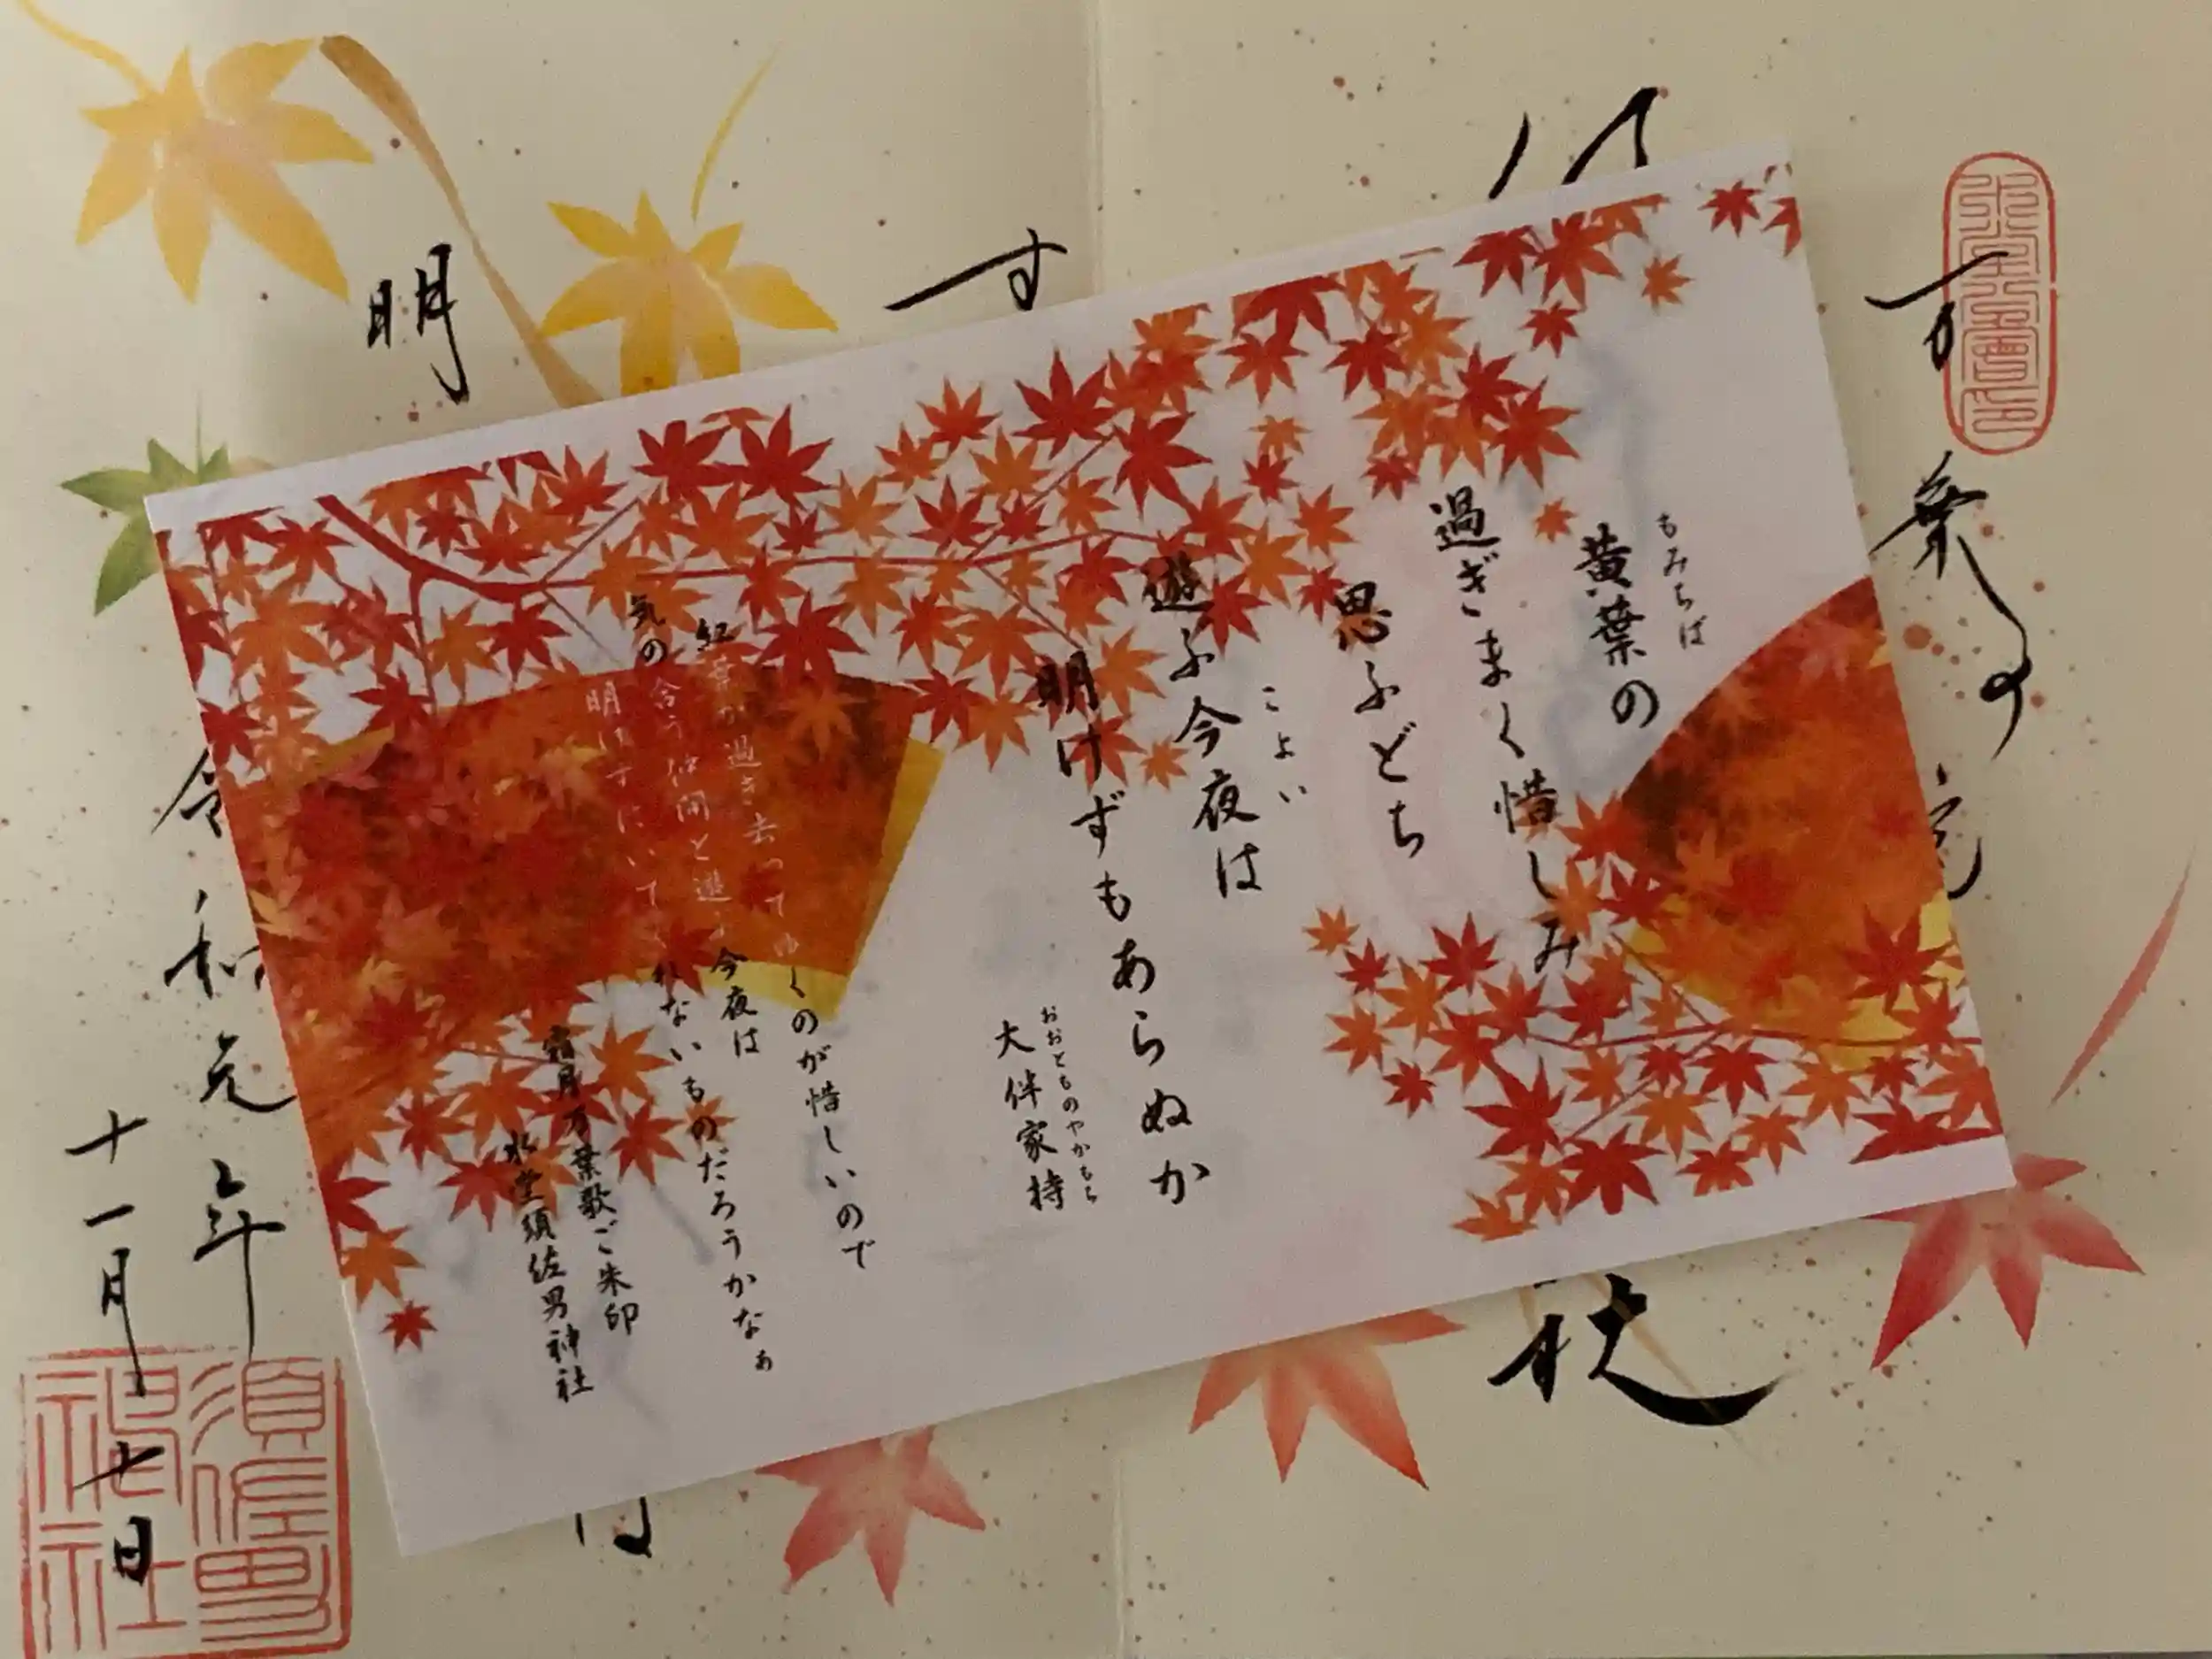 もみちば
黄葉の
過ぎまく惜しみ
思ふどち
こよい
遊ふ今夜は
明けずもあらぬか
おおとものやかもち
大伴家持
紅葉が過ぎ去ってゆくのが惜しいので
気の合う仲間と遊ぶ今夜は
明けずにいてくれないものだろうかなぁ
霜月万葉歌ご朱印
水堂須佐男神社
す
明
令和元年
十一月七日
須佐男
神社